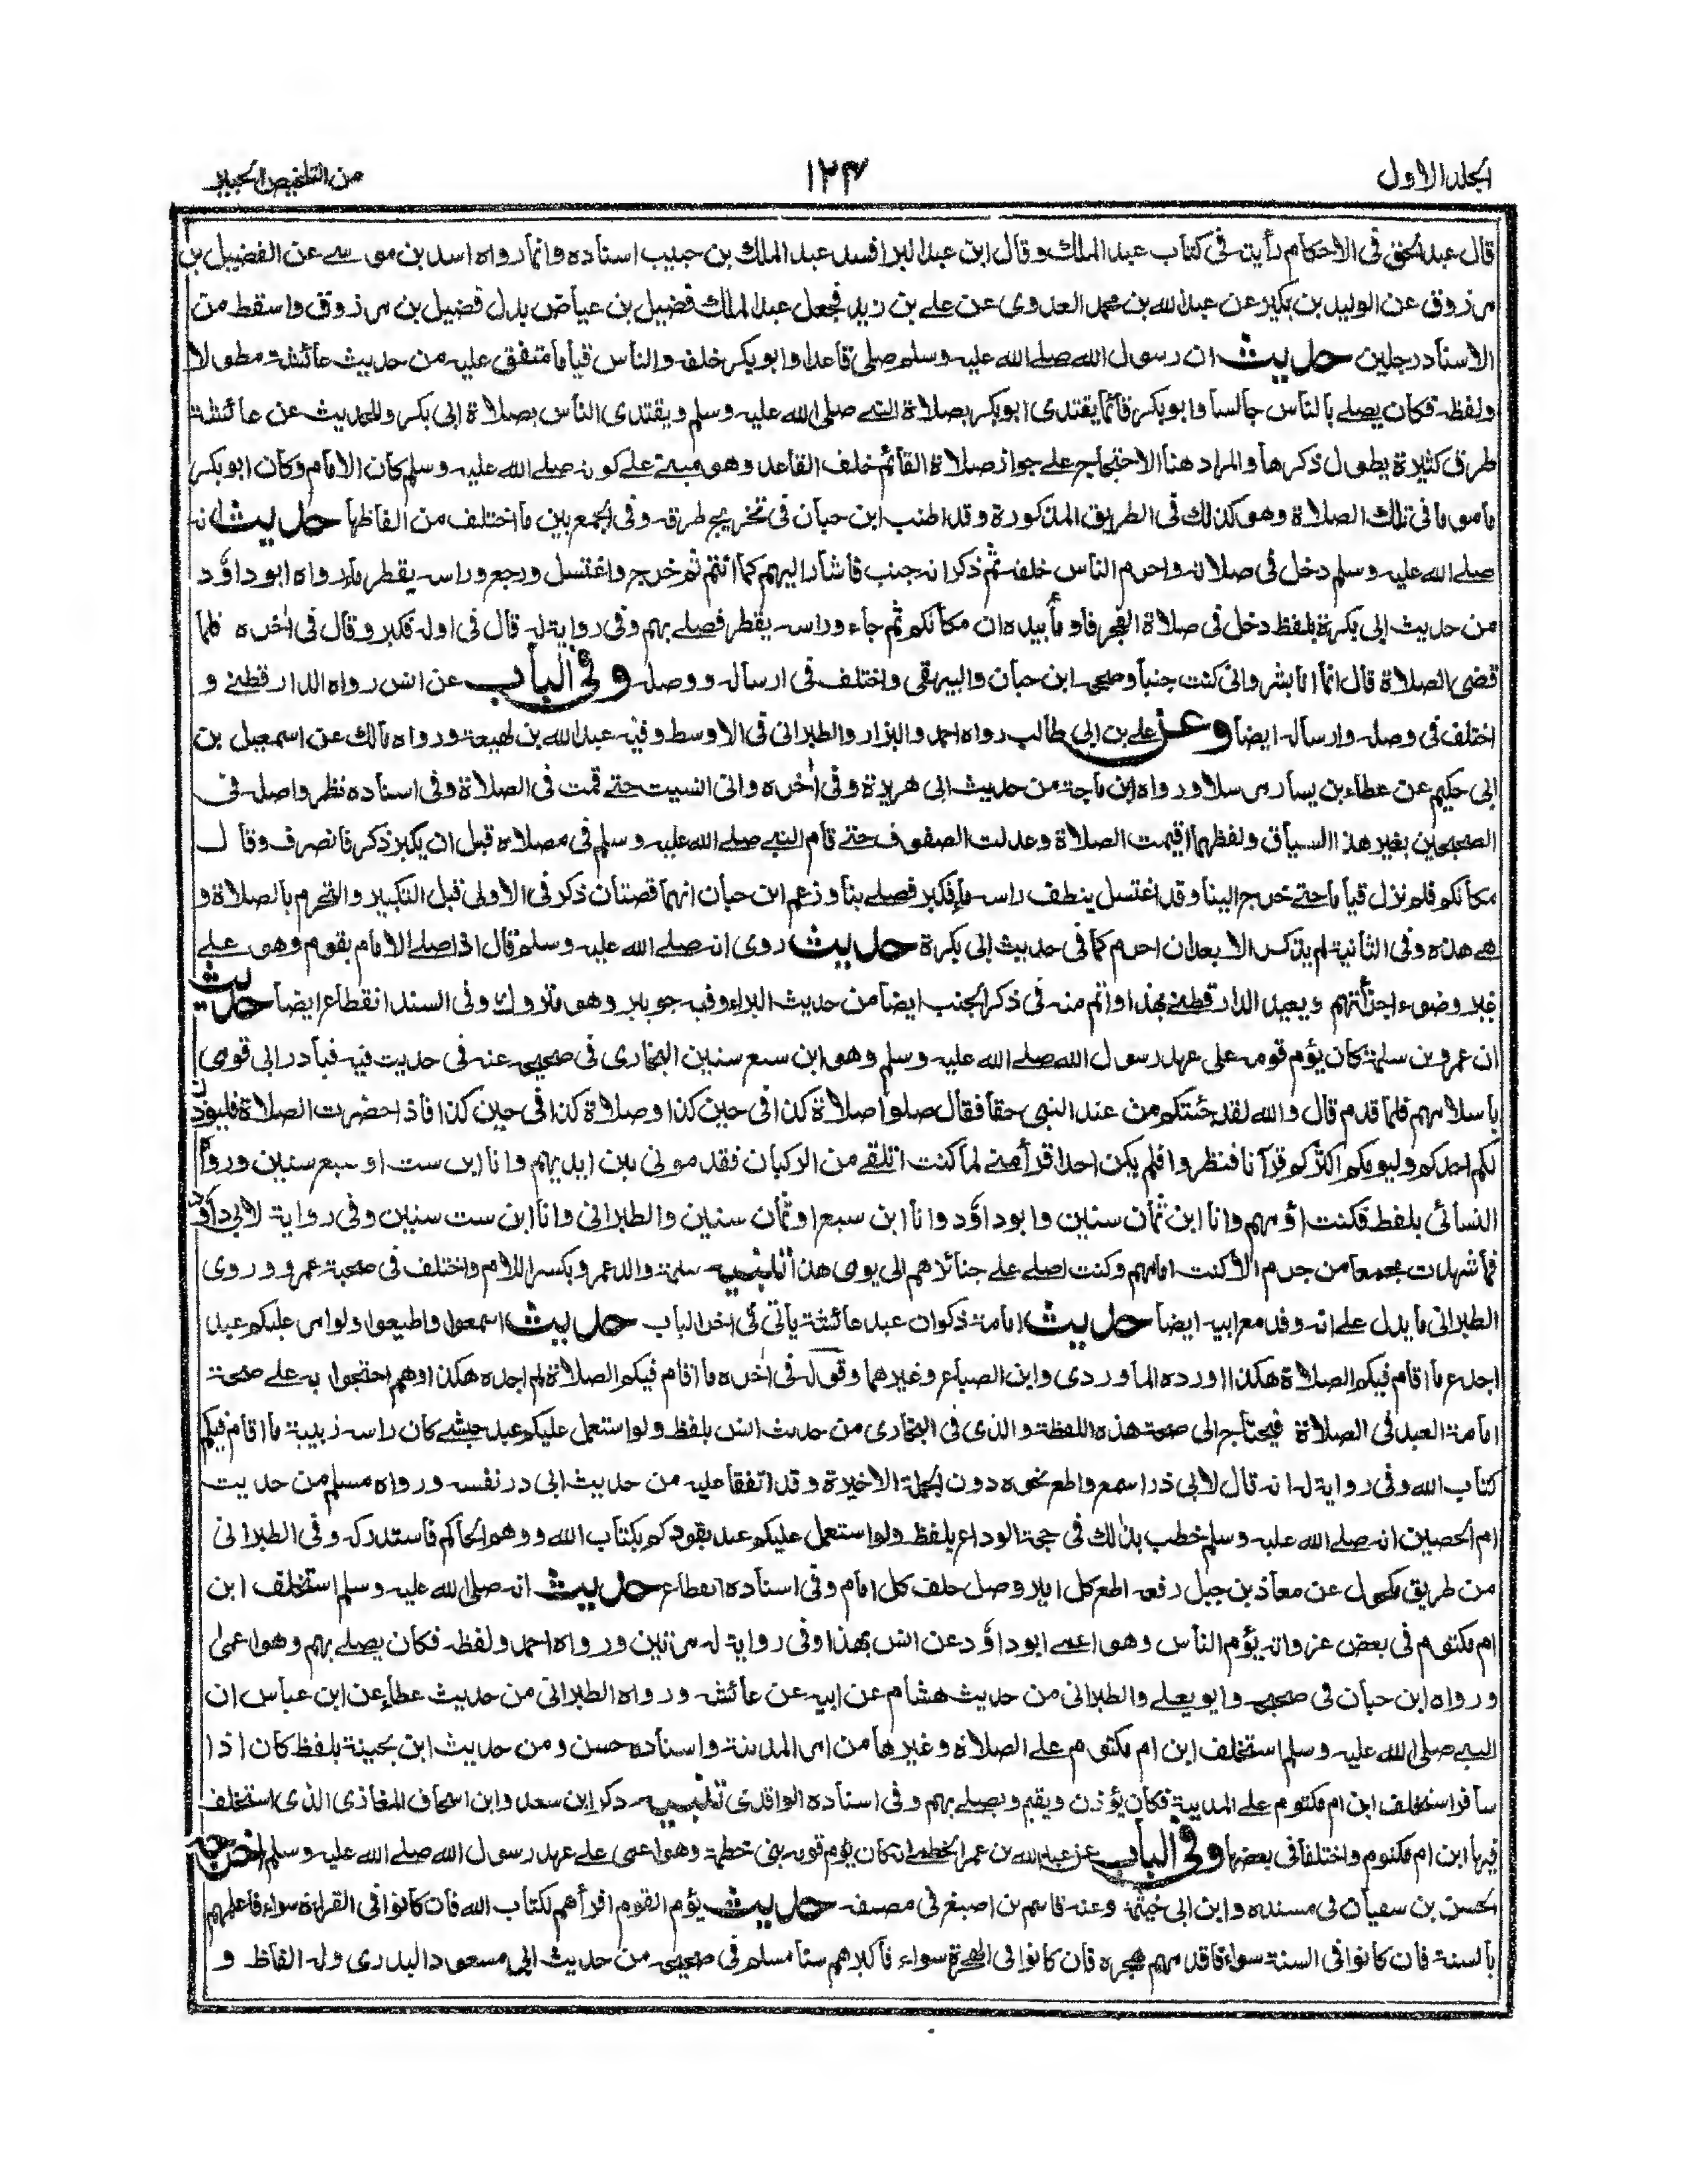 الجلد الاول
١٢٣
من التلخيص الحبير
قال عبد الحق فى الاحكام رأيته فى كتاب عبد الملك وقال ابن عبد البر افسد عبد الملك بن حبيب اسناده وانما رواه اسد بن موسے عن الفضيل بن
مرزوق عن الوليد بن بكير عن عبد الله بن محمد العدوى عن علے بن زيد فجعل عبد الملك فضيل بن عياض بدل فضيل بن مرزوق واسقط من
الاسناد رجلين حديث ان رسول الله صلے الله عليه وسلم صلى قاعدا وابو بكر خلفه والناس قياما متفق عليه من حديث عائشة مطولا
ولفظه فكان يصلے بالناس جالسا وابو بكر قائما يقتدى ابو بكر بصلاة النبے صلى الله عليه وسلم ويقتدى الناس بصلاة ابى بكر وللحديث عن عائشة
طرق كثيرة يطول ذكرها والمراد هنا الاحتجاج علے جواز صلاة القائم خلف القاعد وهو مبنے علے كونه صلے الله عليه وسلم كان الامام وكان ابو بكر
ماموما فى تلك الصلاة وهو كذلك فى الطريق المذكورة وقد اطنب ابن حبان فى تخريج طرقه وفى الجمع بين ما اختلف من الفاظها حديث انه
صلے الله عليه وسلم دخل فى صلاته واحرم الناس خلفه ثم ذكر انه جنب فاشار اليهم كما انتم ثم خرج واغتسل ورجع وراسه يقطر ماء رواه ابو داؤد
من حديث ابى بكرة بلفظ دخل فى صلاة الفجر فاومأ بيده ان مكانكم ثم جاء وراسه يقطر فصلے بهم وفى رواية له قال فى اوله فكبر وقال فى اخره فلما
قضى الصلاة قال انما انا بشر وانى كنت جنبا وصححه ابن حبان والبيهقى واختلف فى ارساله ووصله وفى الباب عن انس رواه الدارقطنے و
اختلف فى وصله وارساله ايضا وعن علے بن ابى طالب رواه احمد والبزار والطبرانى فى الاوسط وفيه عبد الله بن لهيعة ورواه مالك عن اسمعيل بن
ابى حكيم عن عطاء بن يسار مرسلا ورواه ابن ماجة من حديث ابى هريرة وفى اخره وانى انسيت حتے قمت فى الصلاة وفى اسناده نظر واصله فى
الصحيحين بغير هذا السياق ولفظهما اقيمت الصلاة وعدلت الصفوف حتے قام النبے صلے الله عليه وسلم فى مصلاه قبل ان يكبر ذكر فانصرف وقال
مكانكم فلم نزل قياما حتے خرج الينا وقد اغتسل ينطف راسه ماء فكبر فصلے بنا وزعم ابن حبان انهما قصتان ذكر فى الاولى قبل التكبير والتحرم بالصلاة و
هے هذه وفى الثانية لم يذكر الا بعد ان احرم كما فى حديث ابى بكرة حديث روى انه صلے الله عليه وسلم قال اذا صلے الامام بقوم وهو علے
غير وضوء اجزأتهم ويعيد الدارقطنے بهذا واتم منه فى ذكر الجنب ايضا من حديث البراء وفيه جويبر وهو متروك وفى السند انقطاع ايضا حديث
ان عمرو بن سلمة كان يؤم قومه على عهد رسول الله صلے الله عليه وسلم وهو ابن سبع سنين البخارى فى صحيحه عنه فى حديث فيه فبادر ابى قومى
باسلامهم فلما قدم قال والله لقد جئتكم من عند النبى حقا فقال صلوا صلاة كذا فى حين كذا وصلاة كذا فى حين كذا فاذا حضرت الصلاة فليوذن
لكم احدكم وليومكم اكثركم قرآنا فنظروا فلم يكن احد اقرأ منے لما كنت اتلقے من الركبان فقدمونى بين ايديهم وانا ابن ست او سبع سنين ورواه
النسائى بلفظ فكنت اؤمهم وانا ابن ثمان سنين وابو داؤد وانا ابن سبع او ثمان سنين والطبرانى وانا ابن ست سنين وفى رواية لابى داؤد
فما شهدت مجمعا من جرم الا كنت امامهم وكنت اصلے علے جنائزهم الى يومى هذا تنبيه سلمة والد عمرو بكسر اللام واختلف فى صحبة عمرو وروى
الطبرانى ما يدل علے انه وفد مع ابيه ايضا حديث امامة ذكوان عبد عائشة ياتى فى اخر الباب حديث اسمعوا واطيعوا ولو امر عليكم عبد
اجدع ما اقام فيكم الصلاة هكذا اورده الماوردى وابن الصباغ وغيرهما وقوله فى اخره ما اقام فيكم الصلاة لم اجده هكذا وهم احتجوا به علے صحة
امامة العبد فى الصلاة فيحتاج الى صحة هذه اللفظة والذى فى البخارى من حديث انس بلفظ ولو استعمل عليكم عبد حبشے كان راسه زبيبة ما اقام فيكم
كتاب الله وفى رواية له انه قال لابى ذر اسمع واطع نحوه دون الجملة الاخيرة وقد اتفقا عليه من حديث ابى ذر نفسه ورواه مسلم من حديث
ام الحصين انه صلے الله عليه وسلم خطب بذلك فى حجة الوداع بلفظ ولو استعمل عليكم عبد يقودكم بكتاب الله ووهم الحاكم فاستدركه وفى الطبرانى
من طريق مكحول عن معاذ بن جبل رفعه اطع كل امير وصل خلف كل امام وفى اسناده انقطاع حديث انه صلى الله عليه وسلم استخلف ابن
ام مكتوم فى بعض غزواته يؤم الناس وهو اعمے ابو داؤد عن انس بهذا وفى رواية له مرتين ورواه احمد ولفظه فكان يصلے بهم وهو اعمى
ورواه ابن حبان فى صحيحه وابو يعلے والطبرانى من حديث هشام عن ابيه عن عائشه ورواه الطبرانى من حديث عطاء عن ابن عباس ان
النبے صلى الله عليه وسلم استخلف ابن ام مكتوم علے الصلاة وغيرها من امر المدينة واسناده حسن ومن حديث ابن بحينة بلفظ كان اذا
سافر استخلف ابن ام مكتوم علے المدينة فكان يؤذن ويقيم ويصلے بهم وفى اسناده الواقدى تنبيه ذكر ابن سعد وابن اسحاق المغازى الذى استخلف
فيها ابن ام مكتوم واختلفا فى بعضها وفى الباب عن عبد الله بن عمر الخطمے انه كان يؤم قومه بنى خطمة وهو اعمى علے عهد رسول الله صلے الله عليه وسلم اخرجه
الحسن بن سفيان فى مسنده وابن ابى خيثمة وعنه قاسم بن اصبغ فى مصنفه حديث يؤم القوم اقرأهم لكتاب الله فان كانوا فى القراءة سواء فاعلمهم
بالسنة فان كانوا فى السنة سواء فاقدمهم هجره فان كانوا فى الهجرة سواء فاكبرهم سنا مسلم فى صحيحه من حديث ابى مسعود البدرى وله الفاظ و